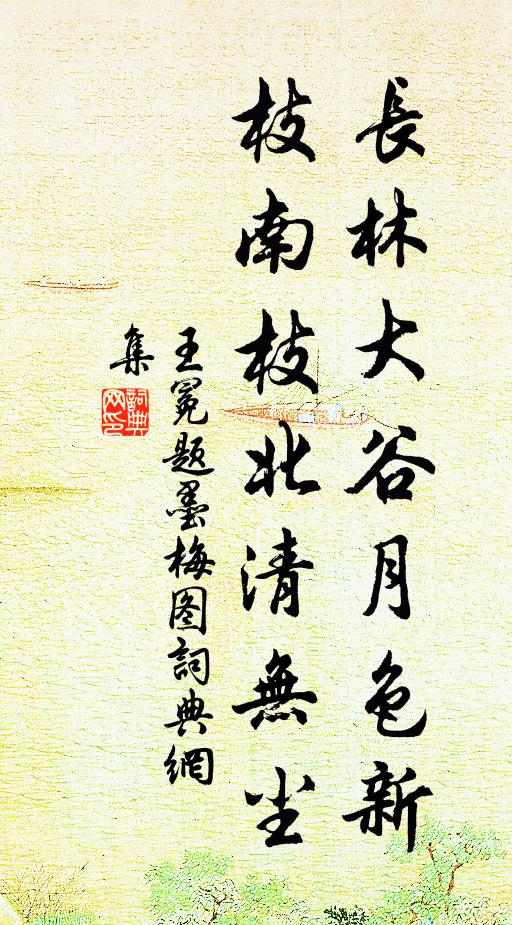 長林大谷月色新
枝南枝北清無尘
王冕题墨梅图詞典網
集
詞典
网印